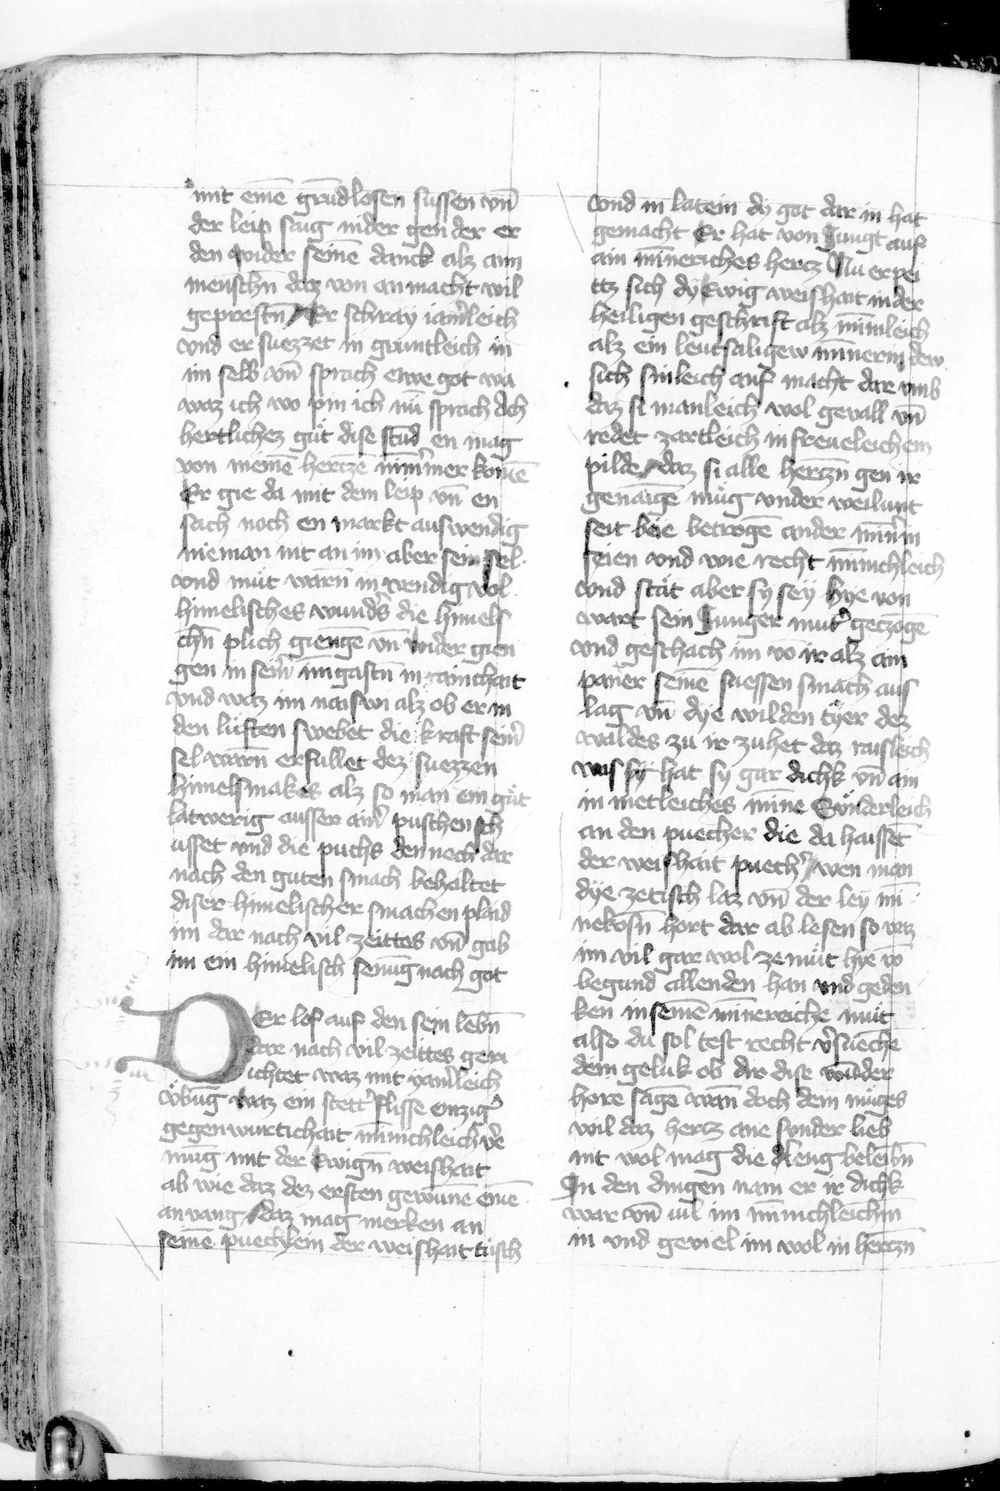 mit einē grūdlosen süssen vn̄
der leip saig nider gen der er
den wider seinē danck alz aim
menschn̄ daz von an macht wil
geprestn̄ Er schray iām̄leich
vnd er suezzet in gruntleich in
im selb vn̄ sprach ewe got wa
waz ich wo pin ich nū sprach Ach
hertzlichez güt dise stūd en mag
von meinē hertzē nim̄mer komē
Er gie da mit dem leip vn̄ en
sach noch en markt auswendig
nieman nit an im aber sein sel
vnd müt warn̄ in wendig vol
himelisches wunds̄ die himels
chn̄ plich giengē vn̄ wider gien
gen in sein̄ im̄gastn̄ in rainchait
vnd waz im naiswi alz ob er in
den lüften swebet die kraft sein̄
sel warn̄ erfullet dez suezzen
himelsmakes alz so man ein güt
latwerig ausser ain̄ puschen sch
üsset vnd die puchs dennoch dar
nach den guten smach behaltet
diser himelischer smachen plaib
im dar nach vil zeittes vn̄ gab
im ein himelisch senūg nach got
DEr lof auf den sein lebn̄
dar nach vil zeittes geri
ichtet waz mit yām̄leich
v̈būg waz ein stett̄ flisse einziḡ
gegenwurtichait minnichleich v̄e
nūg mit der Ewign̄ weishait
ab wie daz dez ersten gewūne einē
anvang daz mag merken an
seinē puechlein der weishait tüsch
vnd in latein dy got dar in hat
gemacht Er hat von Iungt auf
ain mīneriches hertz Nu erpei
ttz sich dy Ewig weishait in der
heiligen geschrift alz mīnleich
alz ein leutsaligew mīnerin dew
sich sinleich auf macht dar vmb
daz si manleich wol gevall vn̄
redet zartleich in freueleichem
pilde daz si alle hertzn̄ gen ir
genaigē müg vnder weilunt
seit beie betrogē ander mīn̄in
seien vnd wie recht mīnichleich
vnd stät aber sy sey hye von
wart sein Iunger mut̄ geczogē
vnd geschach im vō ir alz aim
paner seinē suessen smach aus
lag vn̄ dye wilden tyer dez
waldes zu ir zuhet daz raisleich
weis sy hat sy gar dichk vn̄ am
in metleiches mīne Sünderleich
an den puecher die da haissēt
der weishait puech̄ wen man
dye ze tisch laz vn̄ der ley mī
nekosn̄ hort dar ab lesen so waz
im vil gar wol ze müt hye vō
begund allenden han vnd geden
ken in seinē mīnereichē müt
also du sol test recht v̄suechē
dein geluk ob dir dise wūder
hore sagē wan̄ doch dein müges
wil daz hertz ane sunder lieb
nit wol mag die leng beleibn̄
In den dingen nam er ir dichk
war vn̄ vil im mīnichleichin
in vnd geviel im wol in hertzn̄